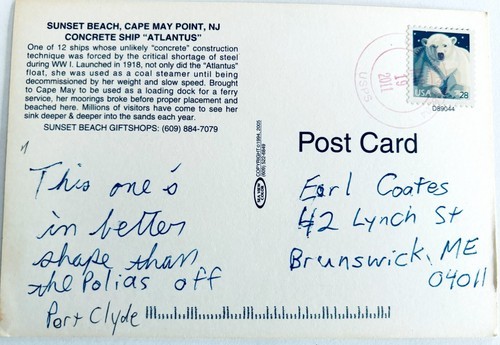 SUNSET BEACH, CAPE MAY POINT, NJ
CONCRETE SHIP "ATLANTUS"
One of 12 ships whose unlikely "concrete" construction
technique was forced by the critical shortage of steel
during WW I. Launched in 1918, not only did the "Atlantus"
float, she was used as a coal steamer until being
decommissioned by her weight and slow speed. Brought
to Cape May to be used as a loading dock for a ferry
service, her moorings broke before proper placement and
beached here. Millions of visitors have come to see her
sink deeper & deeper into the sands each year.
SUNSET BEACH GIFTSHOPS: (609) 884-7079
This one's
in better
shape than
the Polias off
Port Clyde
COPYRIGHT ©1994, 2005
USPS
19
2011
USA
28
D89044
Post Card
Earl Coates
42 Lynch St
Brunswick, ME
04011